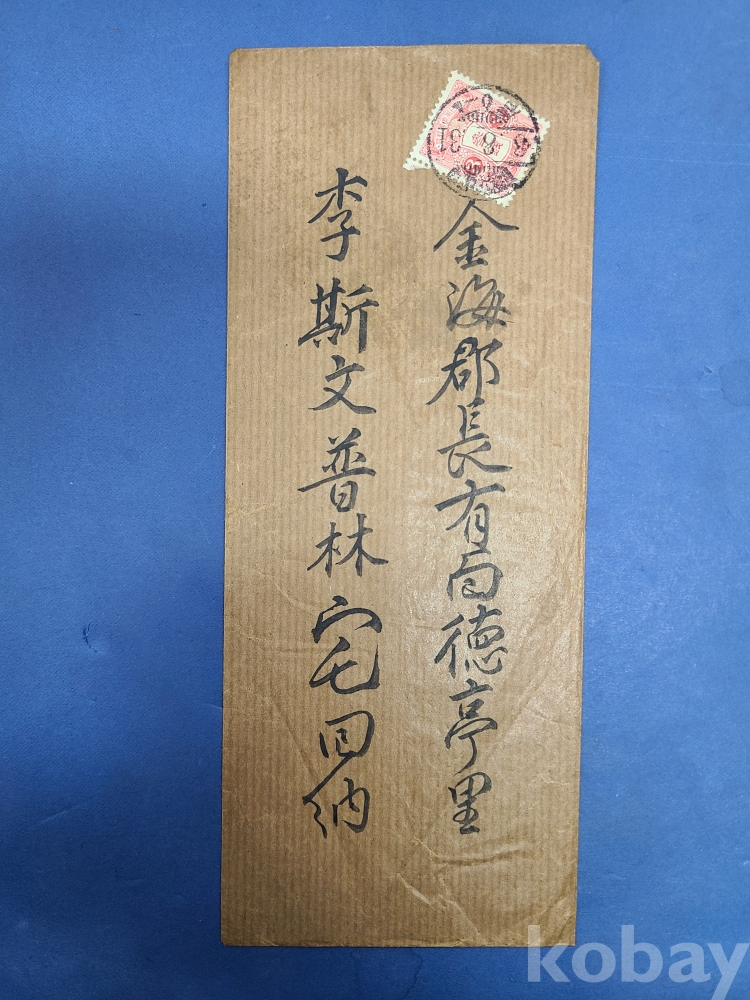 金海郡長有面德亭里
李斯文普林宅回納
8 31
kobay